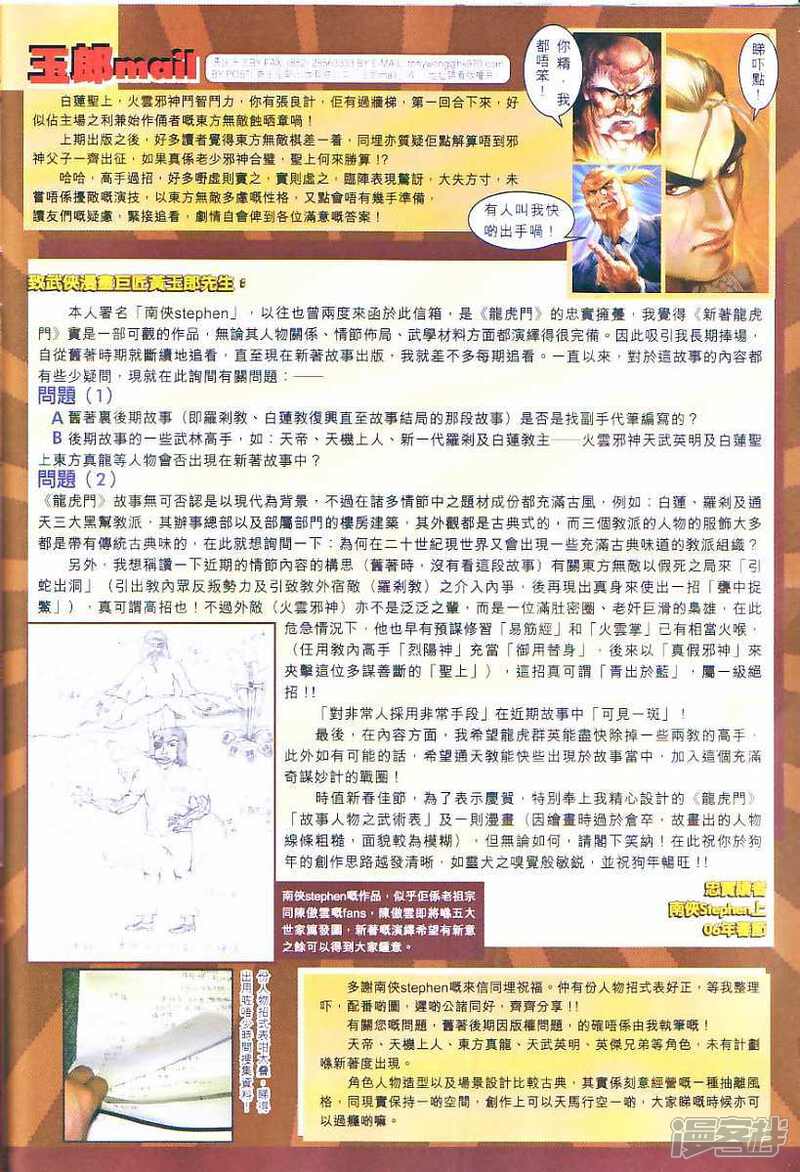 玉郎mail
白蓮聖上，火雲邪神鬥智鬥力，你有張良計，佢有過牆梯，第一回合下來，好
似佔主場之利兼始作俑者嘅東方無敵蝕晒章喎！
上期出版之後，好多讀者覺得東方無敵棋差一着，同埋亦質疑佢點解算唔到邪
神父子一齊出征，如果真係老少邪神合璧，聖上何來勝算！？
哈哈，高手過招，好多嘢虛則實之，實則虛之，臨陣表現驚訝，大失方寸，未
嘗唔係擾敵嘅演技，以東方無敵多慮嘅性格，又點會唔有幾手準備，
讀友們嘅疑慮，緊接追看，劇情自會俾到各位滿意嘅答案！
你精，我
都唔笨！
睇吓點！
有人叫我快
啲出手喎！
致武俠漫畫巨匠黃玉郎先生：
本人署名「南俠stephen」，以往也曾兩度來函於此信箱，是《龍虎門》的忠實擁躉，我覺得《新著龍虎
門》實是一部可觀的作品，無論其人物關係、情節佈局、武學材料方面都演繹得很完備。因此吸引我長期捧場，
自從舊著時期就斷續地追看，直至現在新著故事出版，我就差不多每期追看。一直以來，對於這故事的內容都
有些少疑問，現就在此詢問有關問題：——
問題（1）
A 舊著裏後期故事（即羅剎教、白蓮教復興直至故事結局的那段故事）是否是找副手代筆編寫的？
B 後期故事的一些武林高手，如：天帝、天機上人、新一代羅剎及白蓮教主——火雲邪神天武英明及白蓮聖
上東方真龍等人物會否出現在新著故事中？
問題（2）
《龍虎門》故事無可否認是以現代為背景，不過在諸多情節中之題材成份都充滿古風，例如：白蓮、羅剎及通
天三大黑幫教派，其辦事總部以及部屬部門的樓房建築，其外觀都是古典式的，而三個教派的人物的服飾大多
都是帶有傳統古典味的，在此就想詢問一下：為何在二十世紀現世界又會出現一些充滿古典味道的教派組織？
另外，我想稱讚一下近期的情節內容的構思（舊著時，沒有看這段故事）有關東方無敵以假死之局來「引
蛇出洞」（引出教內眾反叛勢力及引致教外宿敵（羅剎教）之介入內爭，後再現出真身來使出一招「甕中捉
鱉」），真可謂高招也！不過外敵（火雲邪神）亦不是泛泛之輩，而是一位滿肚密圈、老奸巨滑的梟雄，在此
危急情況下，他也早有預謀修習「易筋經」和「火雲掌」已有相當火喉，
（任用教內高手「烈陽神」充當「御用替身」，後來以「真假邪神」來
夾擊這位多謀善斷的「聖上」），這招真可謂「青出於藍」，屬一級絕
招！！
「對非常人採用非常手段」在近期故事中「可見一斑」！
最後，在內容方面，我希望龍虎群英能盡快除掉一些兩教的高手，
此外如有可能的話，希望通天教能快些出現於故事當中，加入這個充滿
奇謀妙計的戰圈！
時值新春佳節，為了表示慶賀，特別奉上我精心設計的《龍虎門》
「故事人物之武術表」及一則漫畫（因繪畫時過於倉卒，故畫出的人物
線條粗糙，面貌較為模糊），但無論如何，請閣下笑納！在此祝你於狗
年的創作思路越發清晰，如靈犬之嗅覺般敏銳，並祝狗年暢旺！！
忠實讀者
南俠Stephen上
06年春節
南俠stephen嘅作品，似乎佢係老祖宗
同陳傲雲嘅fans，陳傲雲即將喺五大
世家篇發圍，新著嘅演繹希望有新意
之餘可以得到大家鍾意。
份人物招式表咁大疊，睇得
出用咗唔少時間搜集資料！
多謝南俠stephen嘅來信同埋祝福。仲有份人物招式表好正，等我整理
吓，配番啲圖，遲啲公諸同好，齊齊分享！！
有關您嘅問題，舊著後期因版權問題，的確唔係由我執筆嘅！
天帝、天機上人、東方真龍、天武英明、英傑兄弟等角色，未有計劃
喺新著度出現。
角色人物造型以及場景設計比較古典，其實係刻意經營嘅一種抽離風
格，同現實保持一啲空間，創作上可以天馬行空一啲，大家睇嘅時候亦可
以過癮啲嘛。
漫客栈